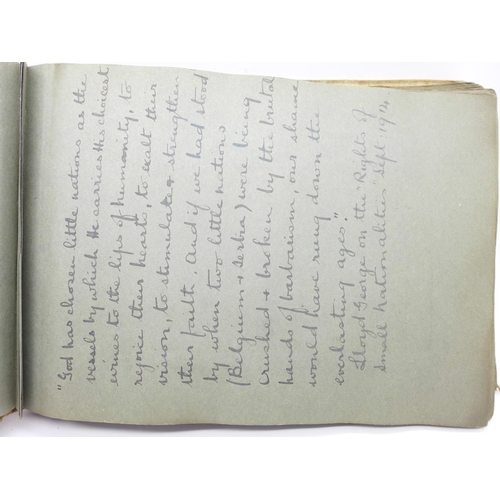 "God has chosen little nations as the
vessels by which He carries His choicest
wines to the lips of humanity, to
rejoice their hearts, to exalt their
vision, to stimulate & strengthen
their faith. And if we had stood
by when two little nations
(Belgium & Serbia) were being
crushed & broken by the brutal
hands of barbarism, our shame
would have rung down the
everlasting ages".
Lloyd George on the "Rights of
Small Nationalities" Sept: 1914.